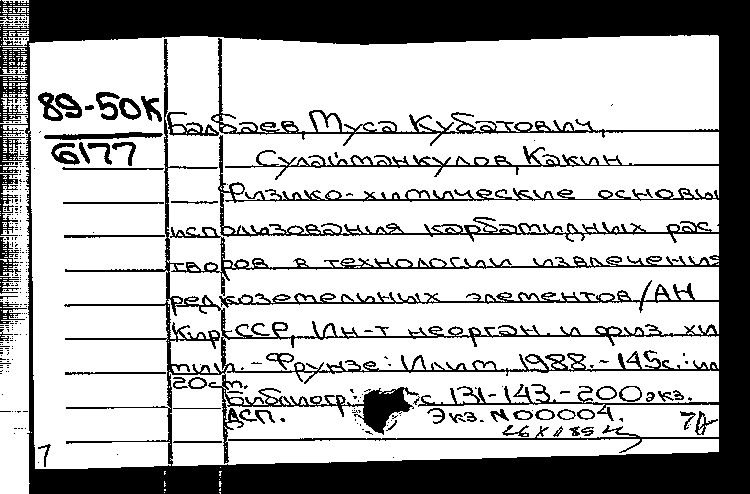 89-50К
6177
Балбаев, Муса Кубатович,
Сулайманкулов, Какин.
Физико-химические основы
использования карбамидных рас-
творов в технологии извлечения
редкоземельных элементов/АН
КиргССР, Ин-т неорган. и физ. хи
мии. - Фрунзе: Илим, 1988. - 145с.: ил
20см.
Библиогр.: с. 131-143. - 200экз.
ДСП. Экз. N00004.
7